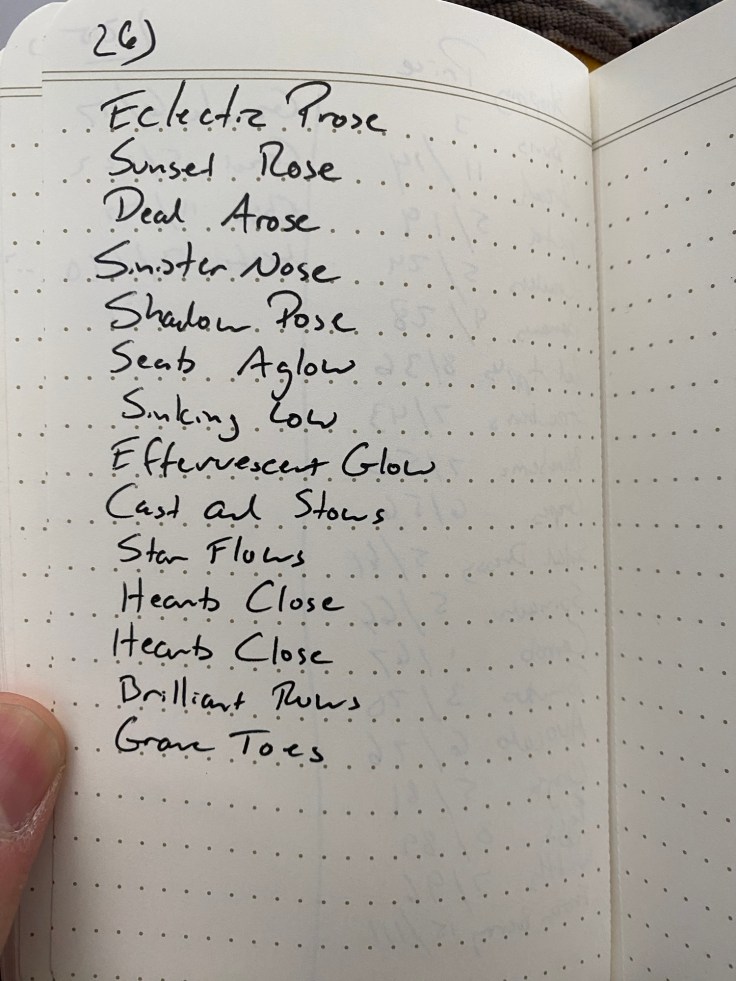 26)
Eclectic Prose
Sunset Rose
Deal Arose
Sinister Nose
Shadow Pose
Seats Aglow
Sinking Low
Effervescent Glow
Cast and Stows
Star Flows
Hearts Close
Hearts Close
Brilliant Rows
Grave Toes